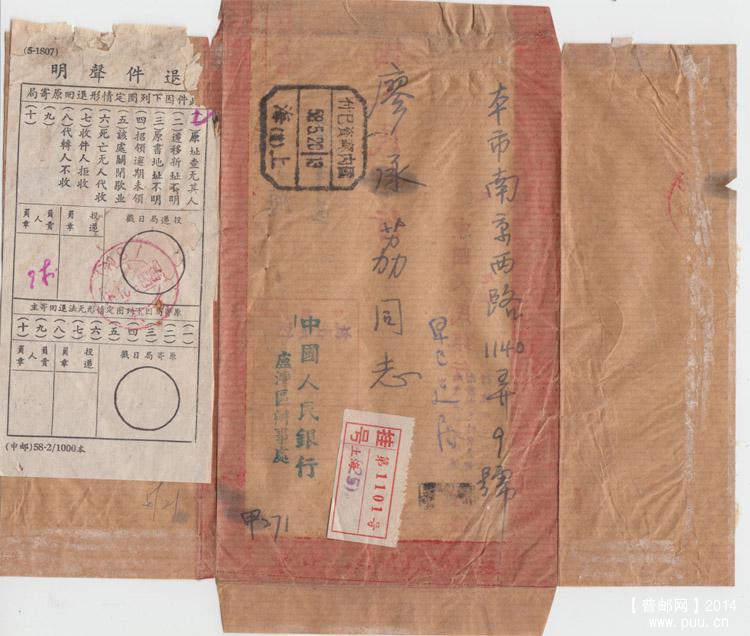 (5-1807)
退件聲明
件因下列圈定情形退回原寄局
(一)原址查无其人
(二)遷移新址不明
(三)原書地址不明
(四)招領逾期未領
(五)該處關閉歇业
(六)死亡无人代收
(七)收件人拒收
(八)代轉人不收
(九)
(十)
投遞局日戳
投遞員章
負責人員章
原寄局因下列圈定情形无法退回寄主
(一)
(二)
(三)
(四)
(五)
(六)
(七)
(八)
(九)
(十)
原寄局日戳
投遞員章
負責人員章
(中邮)58-2/1000本
本市南京西路1140弄9號
廖承荔同志
中國人民銀行
盧灣區辦事處
國內郵資已付
58.5.20
上海
挂号
第1101号
上海(25)
甲271
5/21
【普邮网】2014
www.puu.cn